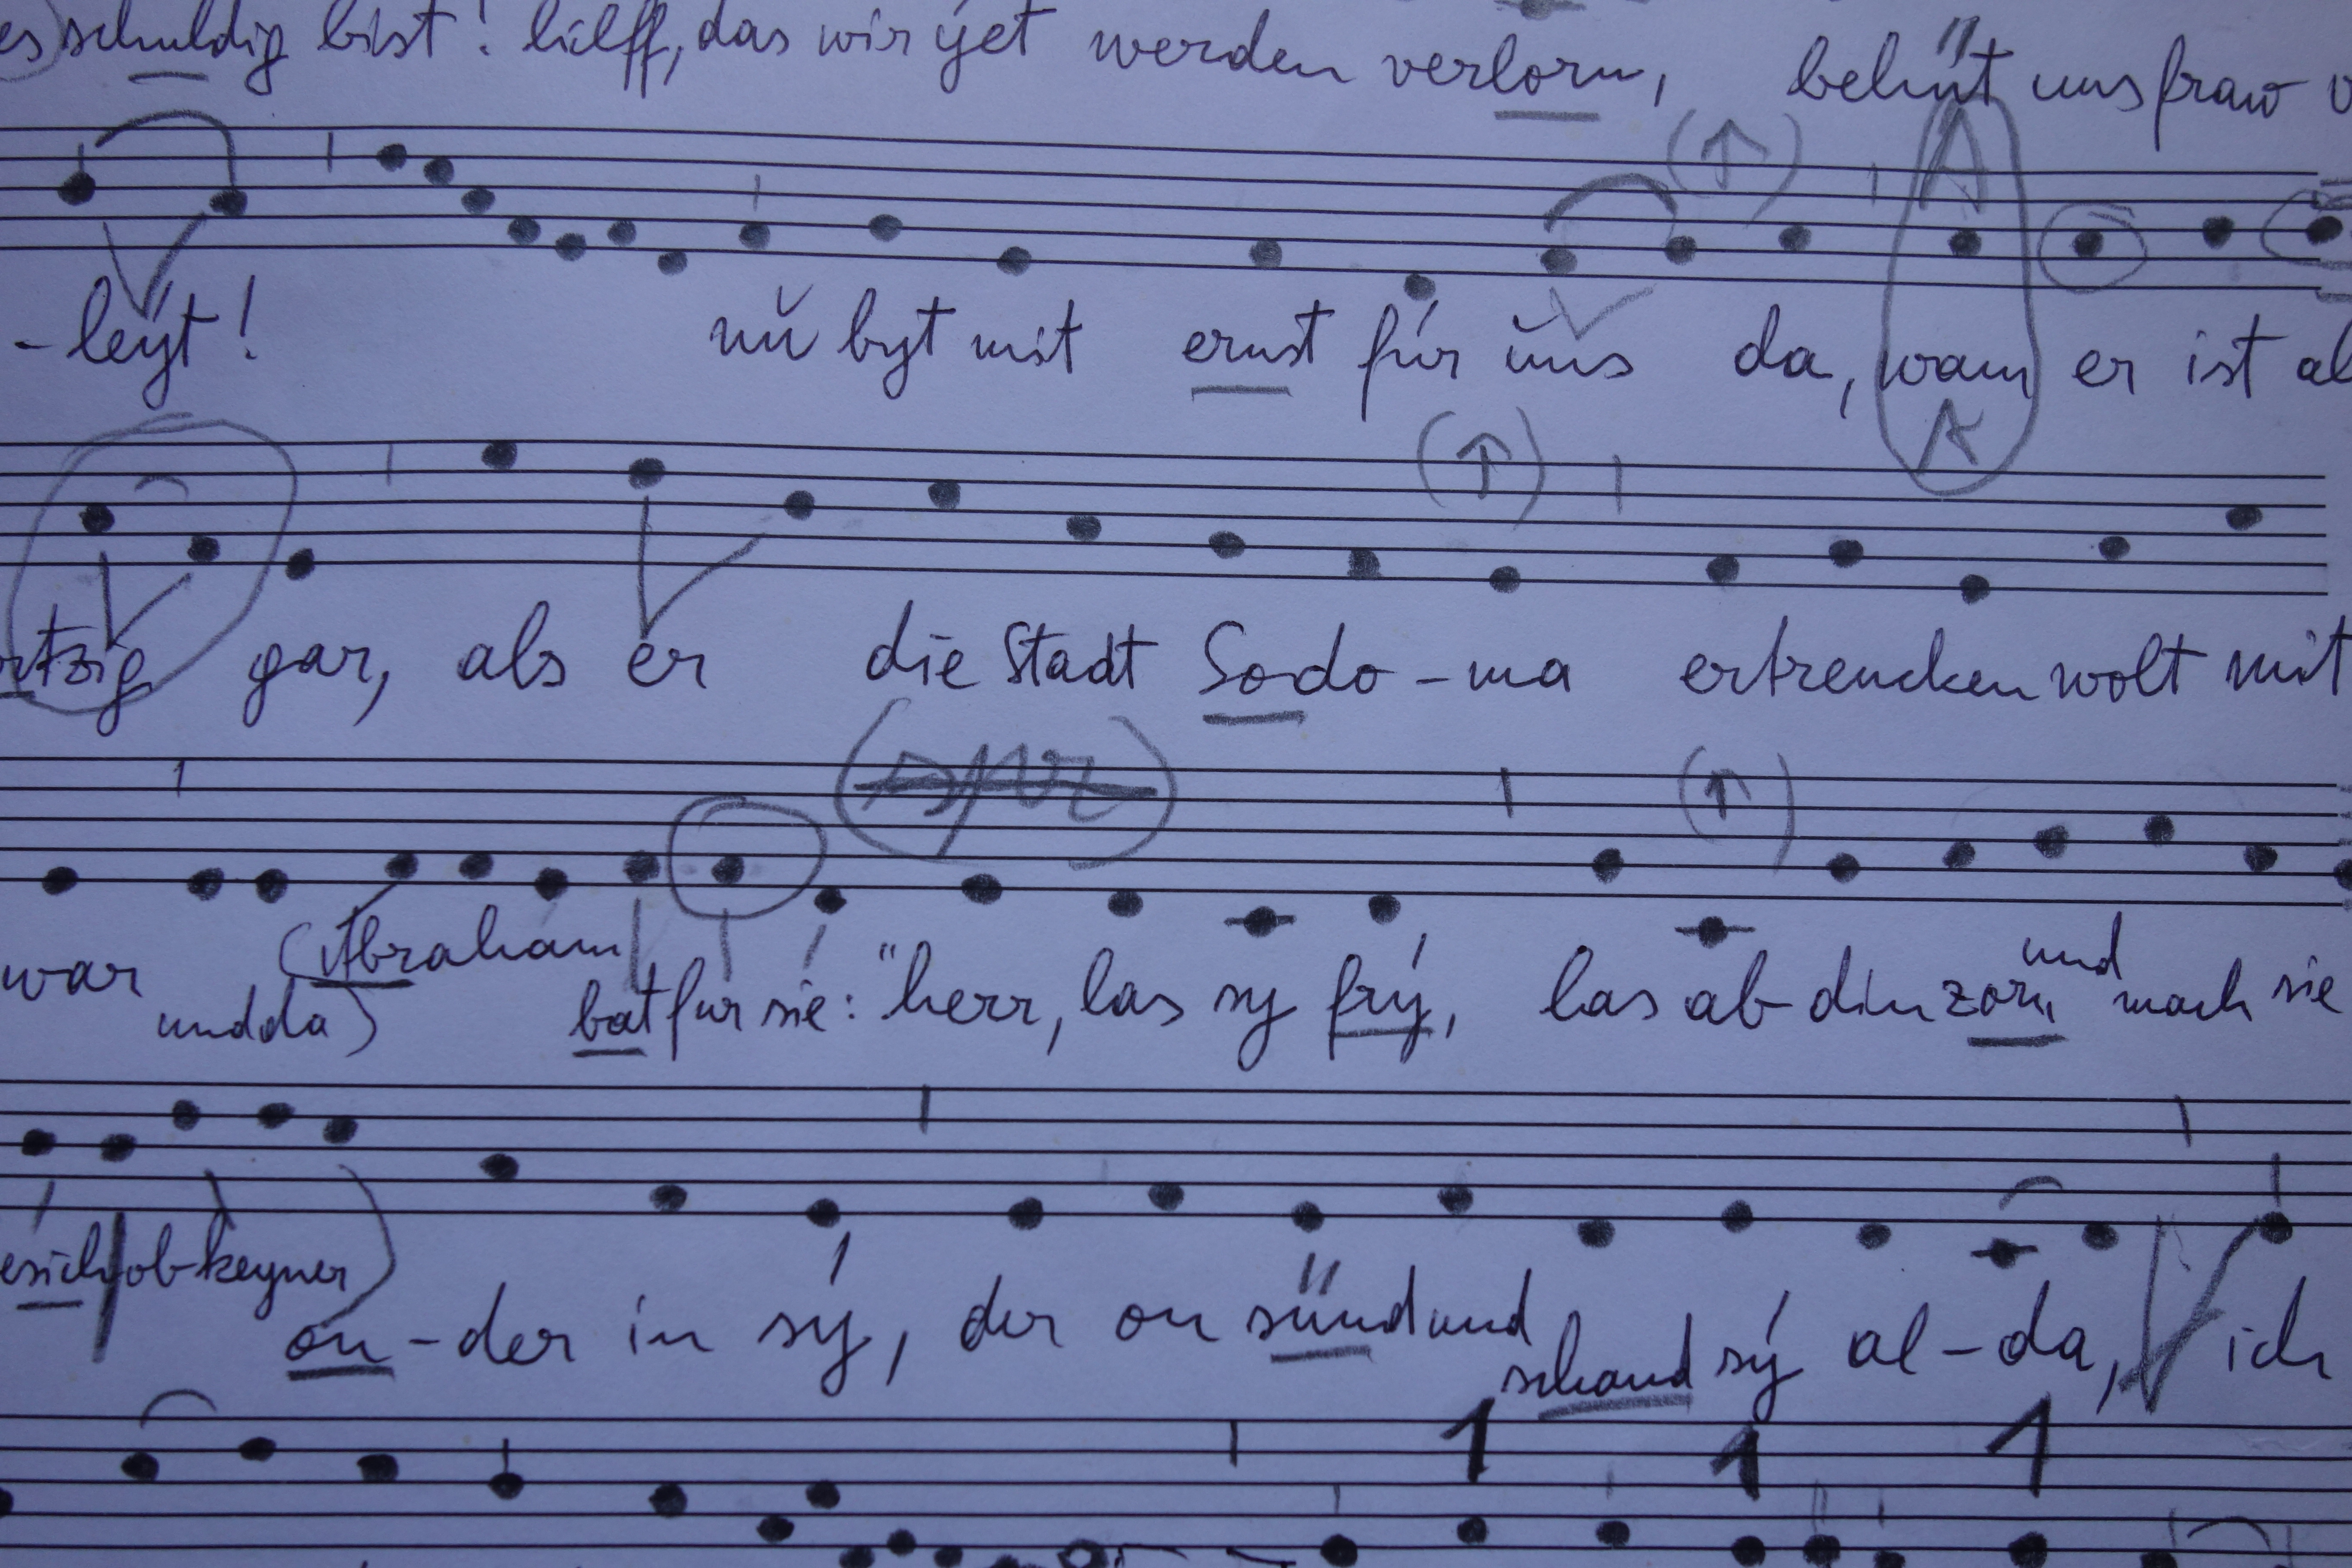 es) schuldig bist! hilff, das wir yet werden verlorn, behüt uns fraw v
-leýt! nŭ byt mit ernst für ŭns da, wann er ist al
rtzig gar, als er die Stadt Sodo-ma ertrencken wolt mit
war (Abraham
und da) bat für sie: "herr, las sy frý, las ab din zorn, und mach sie
esich ob keyner)
on-der in sý, der on sünd und schand sý al-da, ich
1 1 1